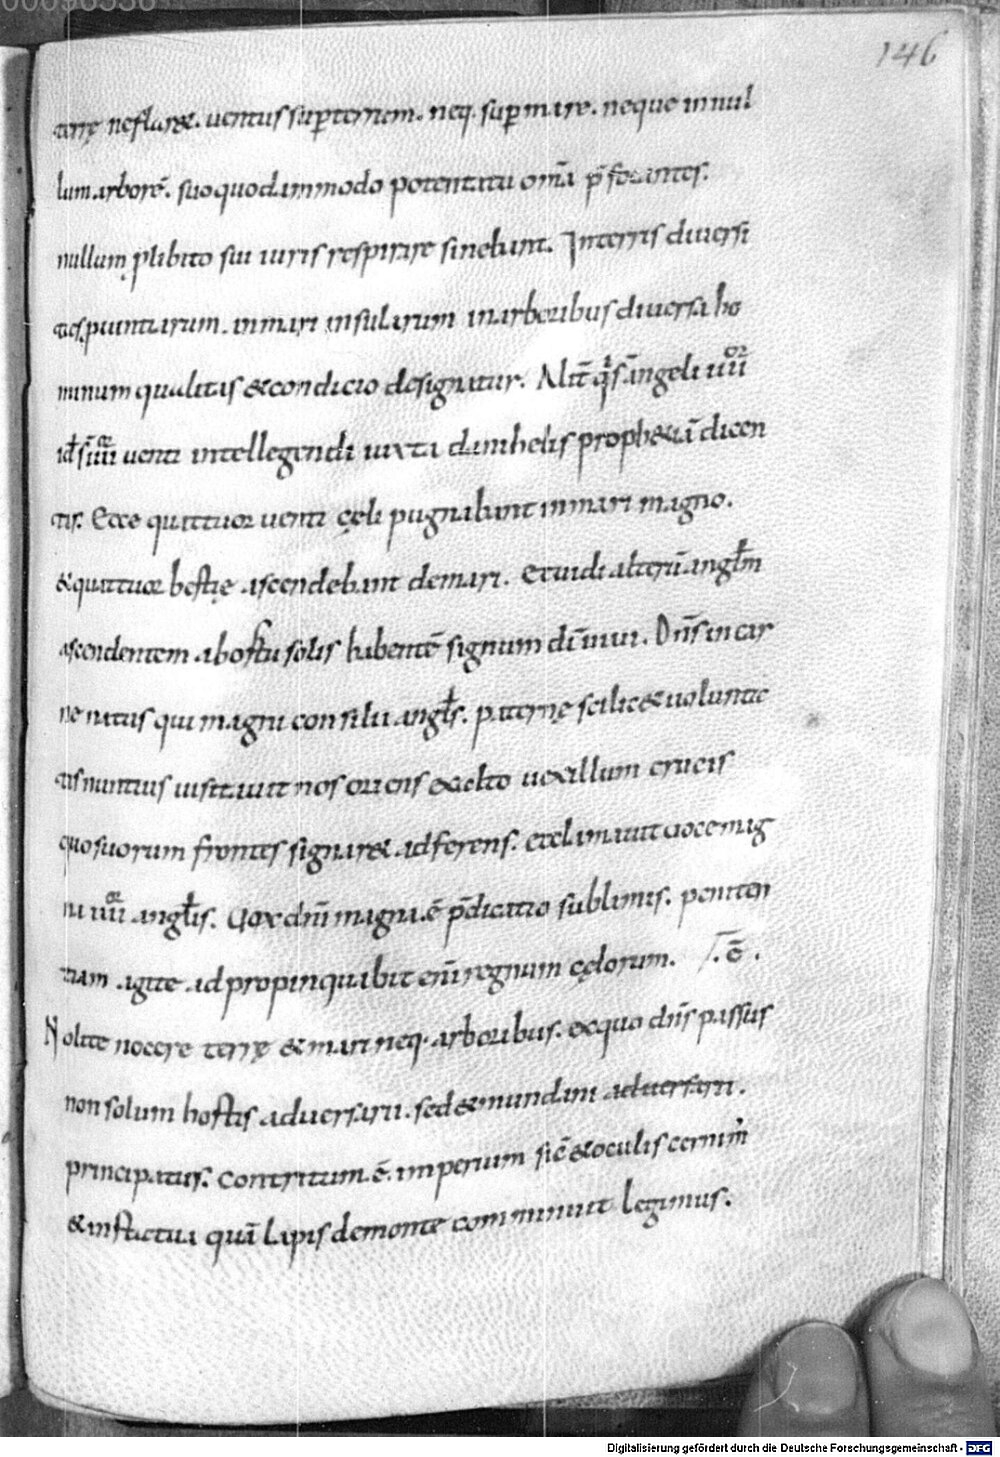 146
terrę neflar&. uentus sup̄ terram. neq. sup̄ mare. neque in nul
lum arborē. suo quodammodo potentatu om̄a p̄focantes.
nullum p̱libito sui iuris respirare sinebunt. In terris diuersi
tas puintiarum. in mari insularum in arboribus diuersa ho
minum qualitas & condicio designatur. Alit̄ q͛s āngeli iiii
id s̄ iiii uenti intellegendi iuxta danihelis proph&iā dicen
tis. Ecce quattuor uenti cęli pugnabunt in mari magno.
& quattuor bestię ascendebant de mari. Et uidi alterū angłm
ascendentem ab ortu solis habentē signum dī uiui. Dn̄s in car
ne natus qui magni consilii angłs. paternę scilic& uolunta
tis nuntius uisitauit nos oriens exalto uexillum crucis
quo suorum frontes signar& adferens. et clamauit uoce mag
na iiii angłis. Uox dn̄i magna. ē p̄dicatio sublimis. peniten
tiam agite adpropinquabit eni᷑ regnum cęlorum. .ē.
Nolite nocere terrę & mari neq. arboribus. exquo dn̄s passus
non solum hostis aduersarii. sed & mundani aduersarii.
principatus. Contritum. ē. imperium sic̄ & oculis cernim᷒
& in statua quā lapis de monte comminuit legimus.
Digitalisierung gefördert durch die Deutsche Forschungsgemeinschaft - DFG